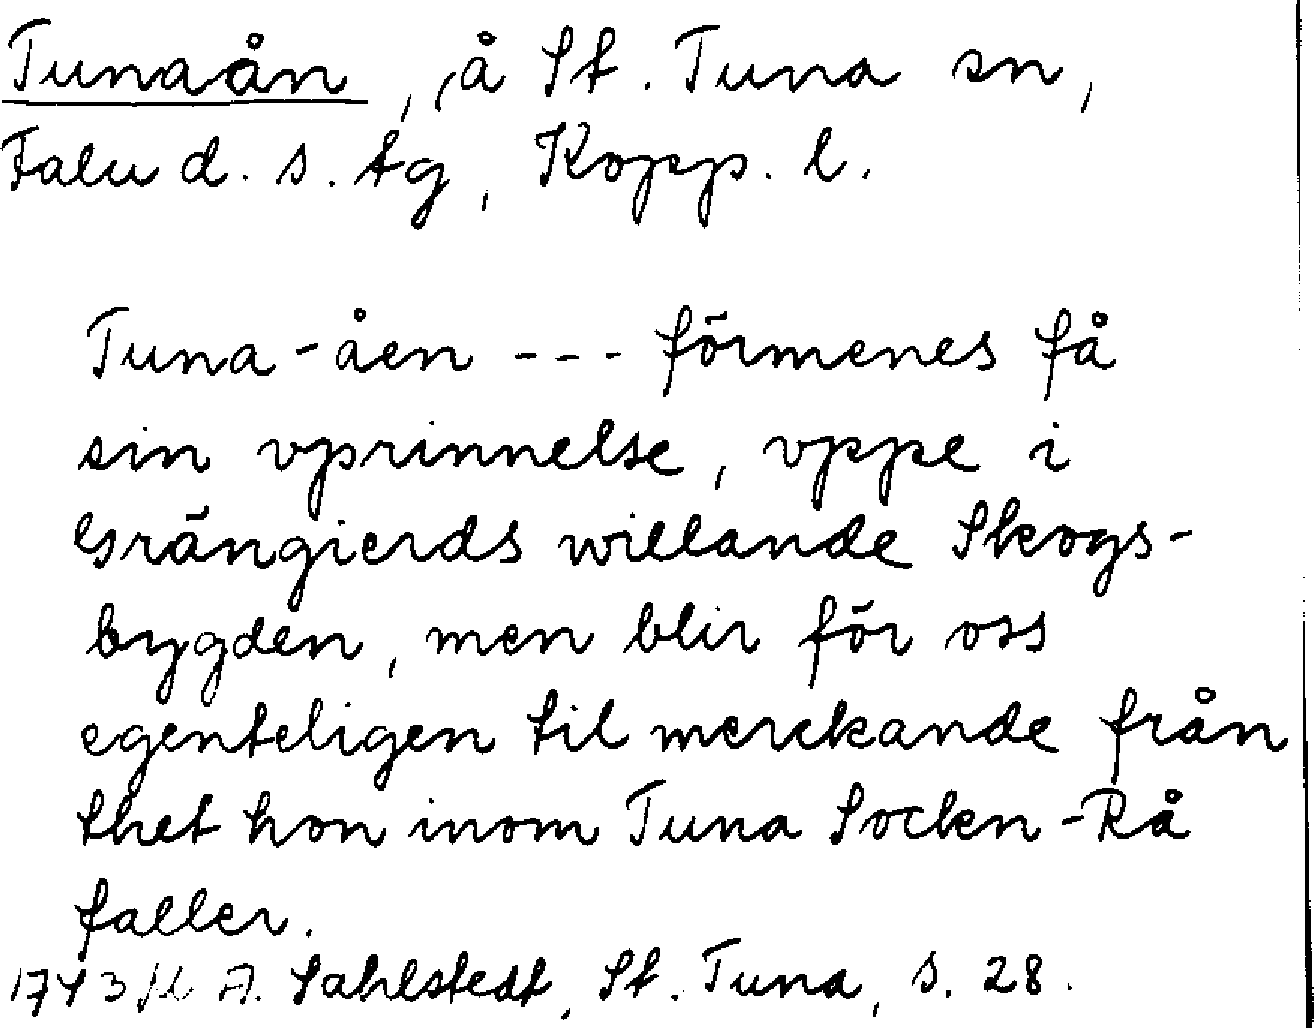 Tunaån, å St. Tuna sn,
Falu d. s. tg, Kopp. l.
Tuna-åen --- förmenes få
sin vprinnelse, vppe i
Grängierds willande Skogs-
bygden, men blir för oss
egenteligen til merckande från
thet hon inom Tuna Sockn-Rå
faller.
1743 A. Sahlstedt, St. Tuna, s. 28.